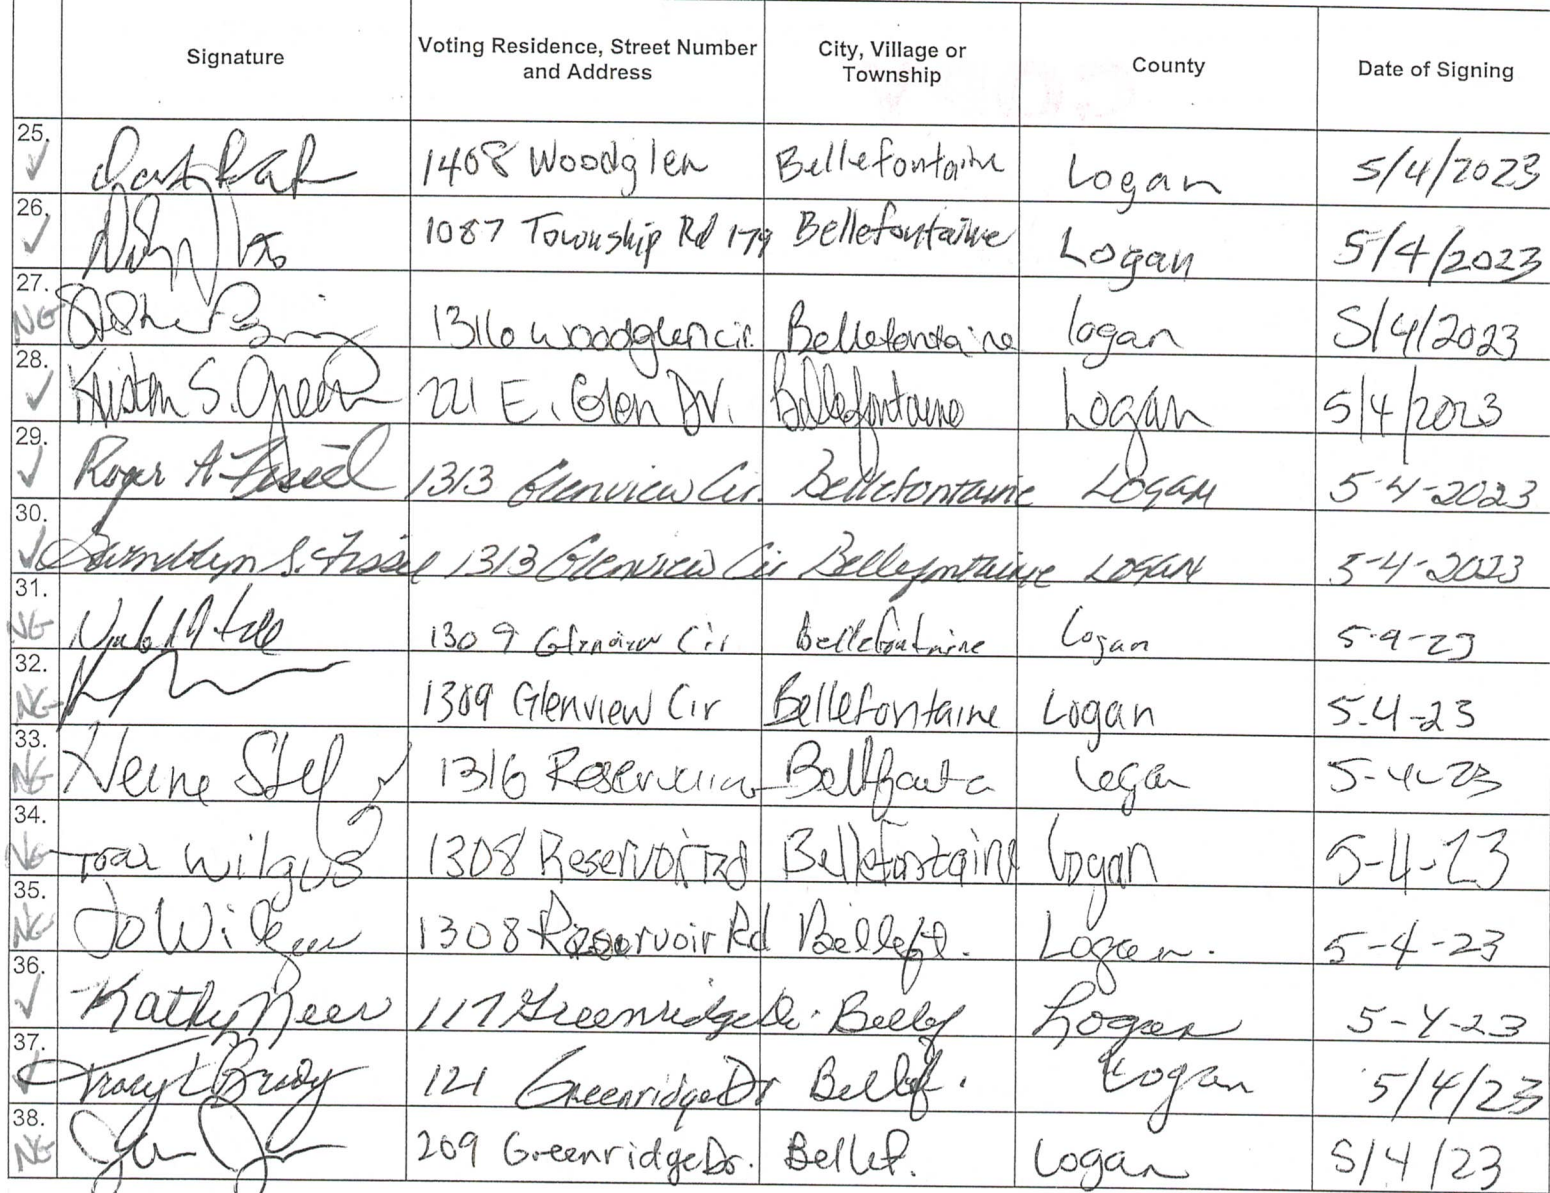 Signature Voting Residence, Street Number and Address City, Village or Township County Date of Signing
25. ✓ 1408 Woodglen Bellefontaine Logan 5/4/2023
26. ✓ 1087 Township Rd 179 Bellefontaine Logan 5/4/2023
27. NG 1316 Woodglen cir. Bellefontaine logan 5/4/2023
28. ✓ Kristen S. Green 221 E. Glen Dr. Bellefontaine Logan 5/4/2023
29. ✓ Roger A. Fissel 1313 Glenview Cir. Bellefontaine LOGAN 5-4-2023
30. ✓ Gwendolyn S. Fissel 1313 Glenview Cir Bellefontaine LOGAN 5-4-2023
31. NG 1309 Glenview Cir Bellefontaine Logan
32. NG 1309 Glenview Cir Bellefontaine Logan 5-4-23
33. NG 1316 Logan 5-4-23
34. NG Wilgus 1308 Reservoir Rd Bellefontaine Logan 5-4-23
35. NG Jo Wilgus 1308 Reservoir Rd Belleft. Logan. 5-4-23
36. ✓ Kathy Neer 117 Greenridge Dr. Bellef Logan 5-4-23
37. ✓ Tracy L Brady 121 Greenridge Dr Bellef. Logan 5/4/23
38. NG 209 Greenridge Dr. Bellef. Logan 5/4/23